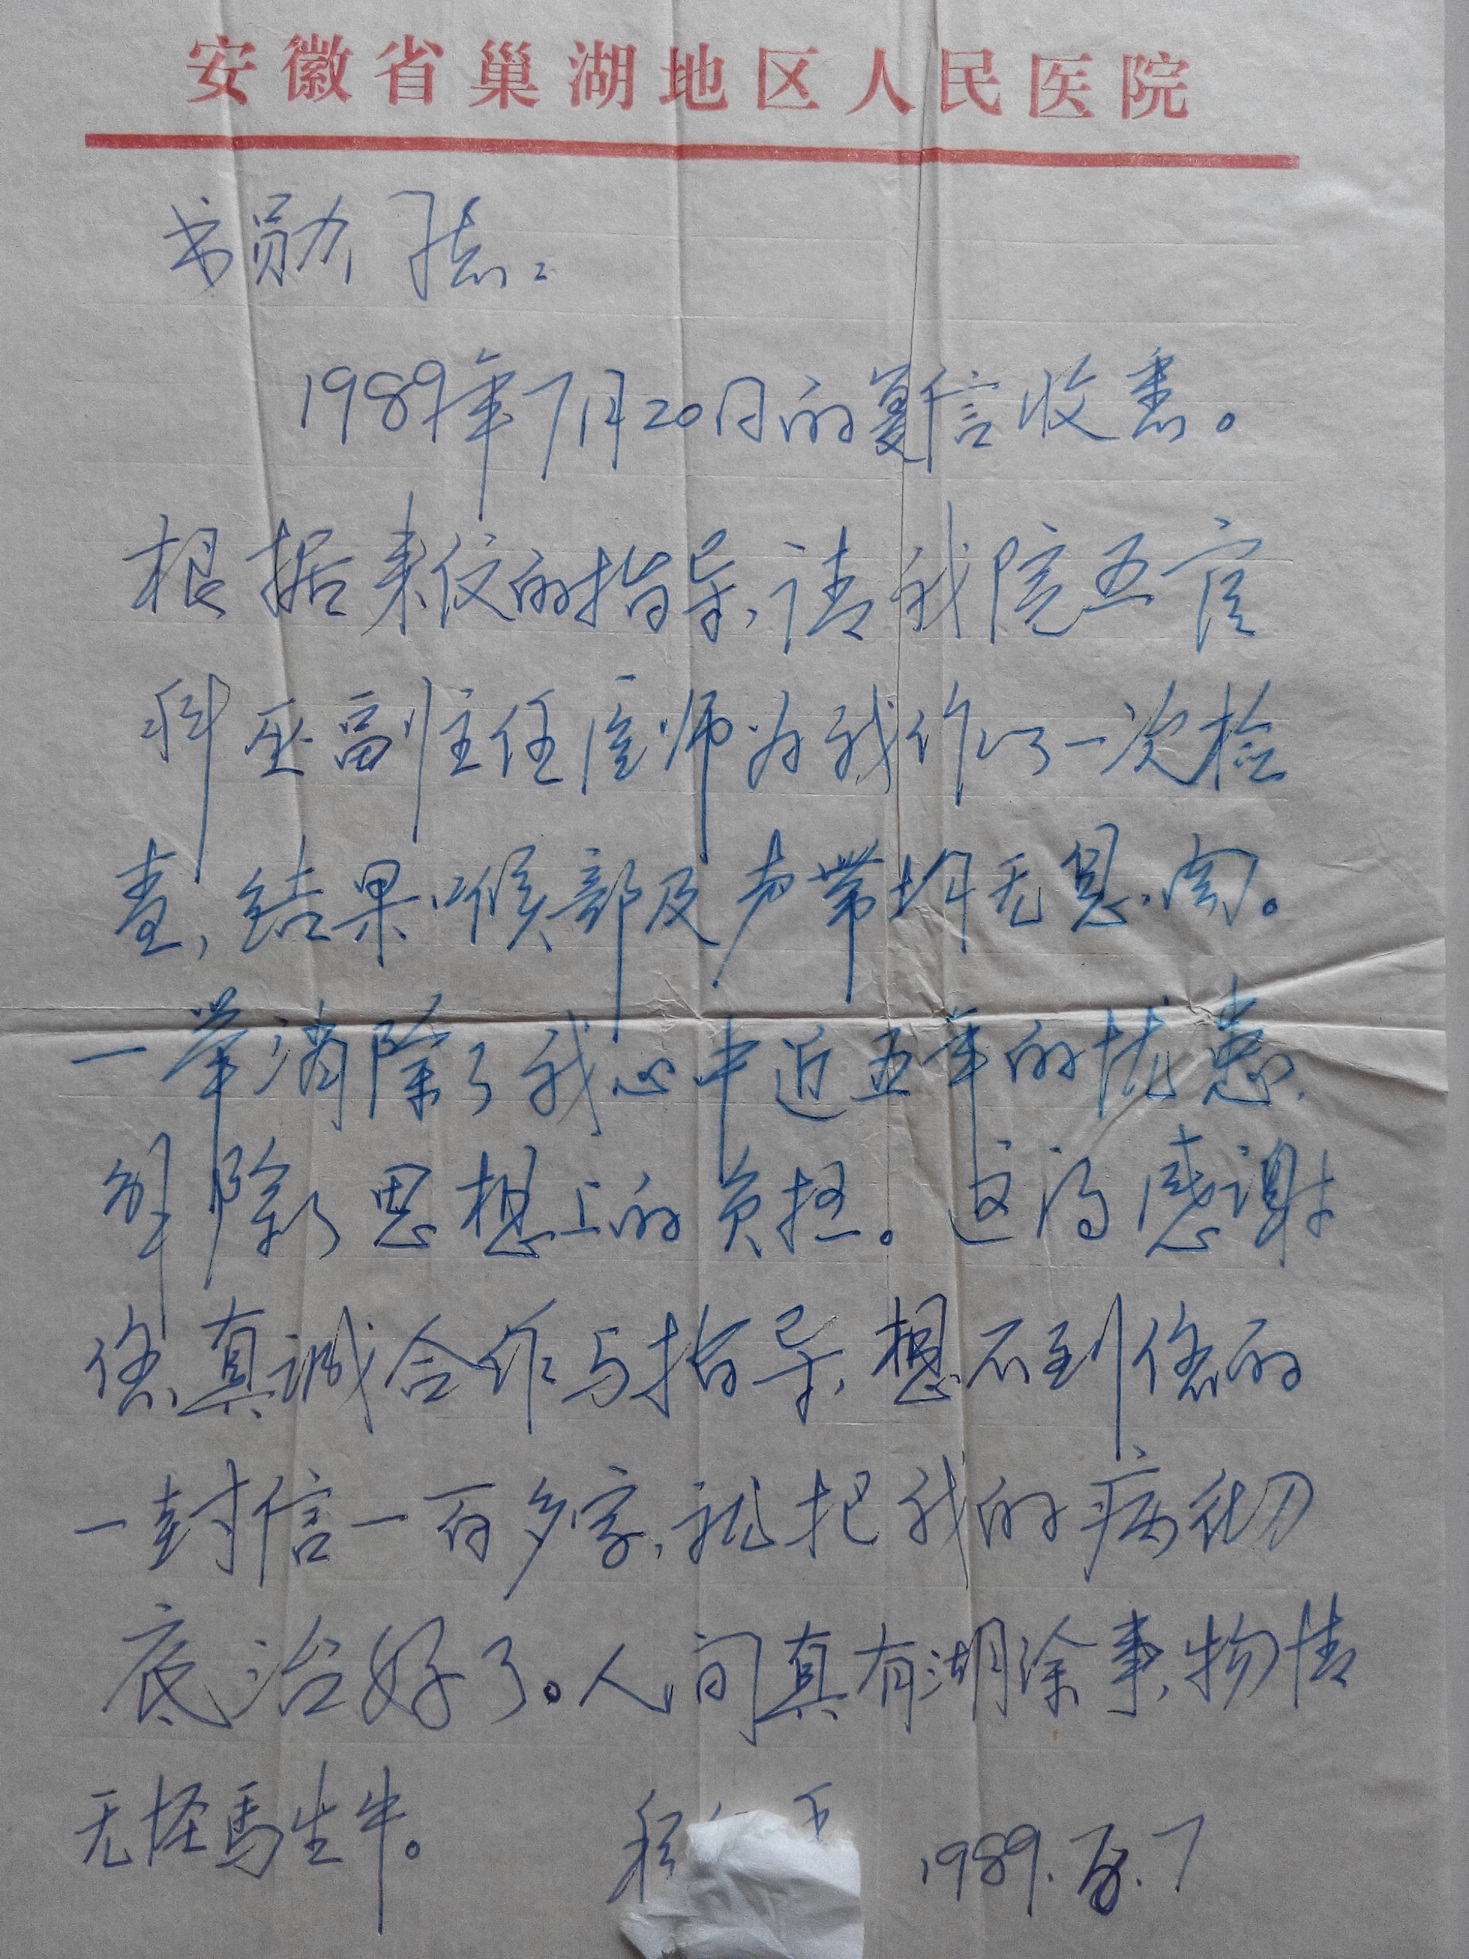 安徽省巢湖地区人民医院
书勋同志:
1989年7月20日的复信收悉。
根据来仪的指导,请我院五官
科巫副主任医师为我作了一次检
查,结果喉部及声带均无息肉。
一举消除了我心中近五年的忧患,
解除了思想上的负担。这得感谢
您真诚合作与指导,想不到您的
一封信一百多字,就把我的病彻
底治好了。人间真有湖除事,物情
无怪马生牛。
1989.8.7